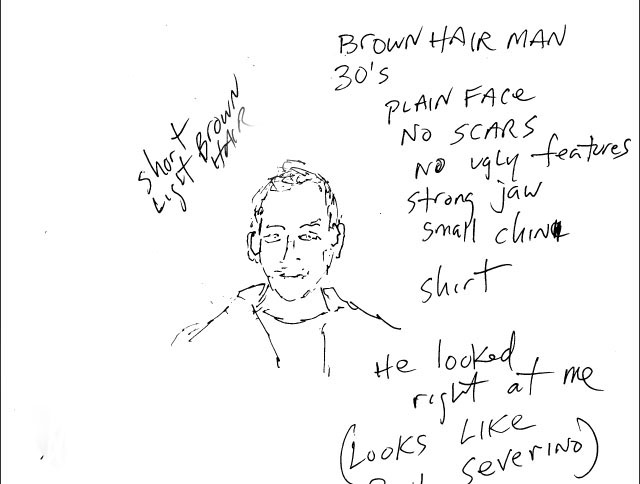 BROWN HAIR MAN
30's
PLAIN FACE
NO SCARS
NO ugly features
strong jaw
small chin
short
short
Light BROWN
HAIR
He looked
right at me
(LOOKS LIKE
SEVERINO)